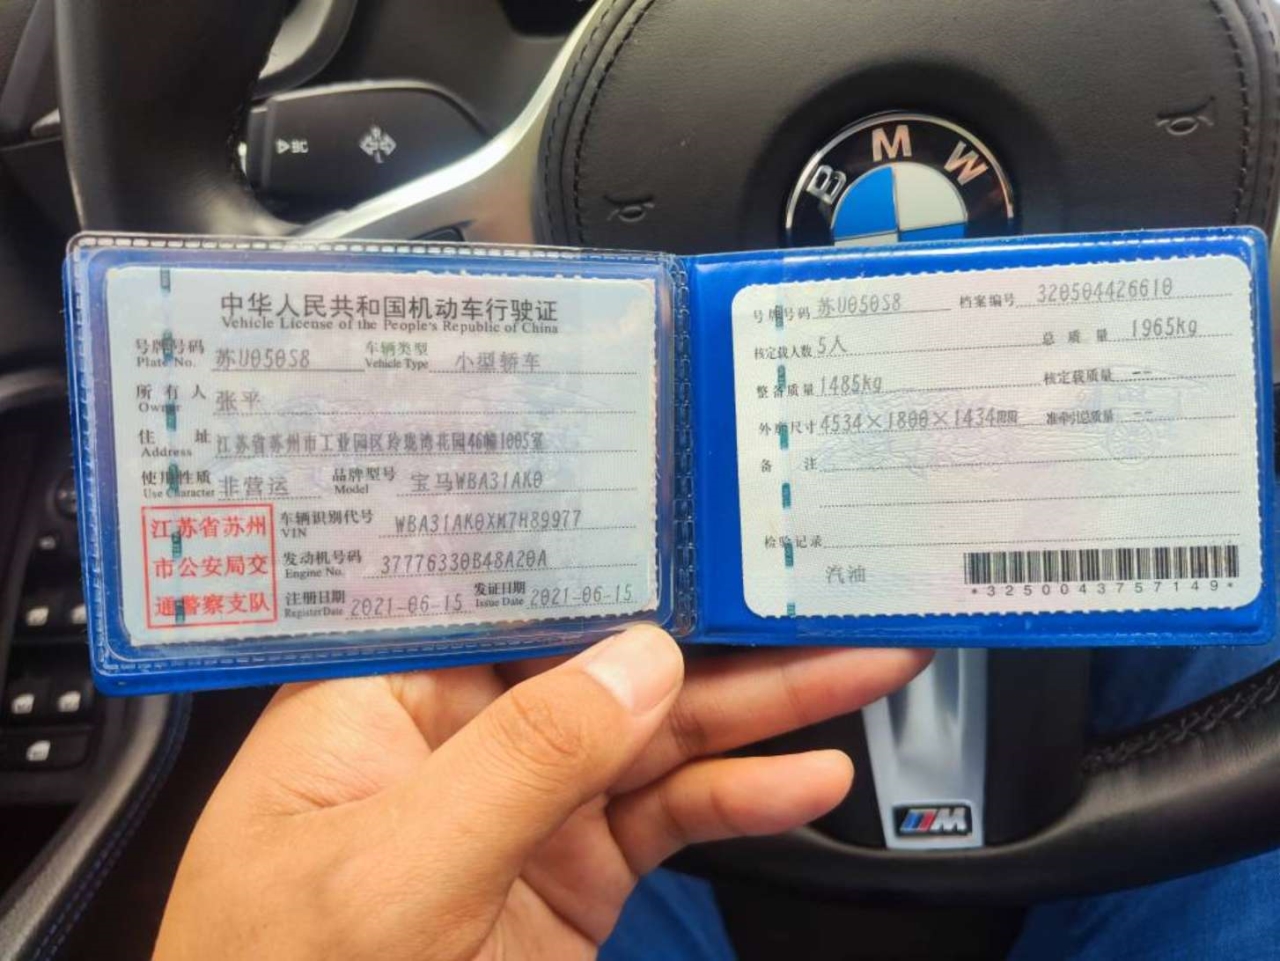 BMW
中华人民共和国机动车行驶证
Vehicle License of the People's Republic of China
号牌号码 苏U050S8 车辆类型 小型轿车
Plate No. Vehicle Type
所有人 张平
Owner
住址 江苏省苏州市工业园区玲珑湾花园46幢1005室
Address
使用性质 非营运 品牌型号 宝马WBA31AK0
Use Character Model
江苏省苏州
市公安局交
通警察支队
车辆识别代号 WBA31AK0XM7H89977
VIN
发动机号码 37776330B48A20A
Engine No.
注册日期 2021-06-15 发证日期 2021-06-15
Register Date Issue Date
号牌号码 苏U050S8 档案编号 320504426610
核定载人数 5人 总质量 1965kg
整备质量 1485kg 核定载质量 --
外廓尺寸 4534×1800×1434 准牵引总质量 --
备注
检验记录
汽油
*3250043757149*
M